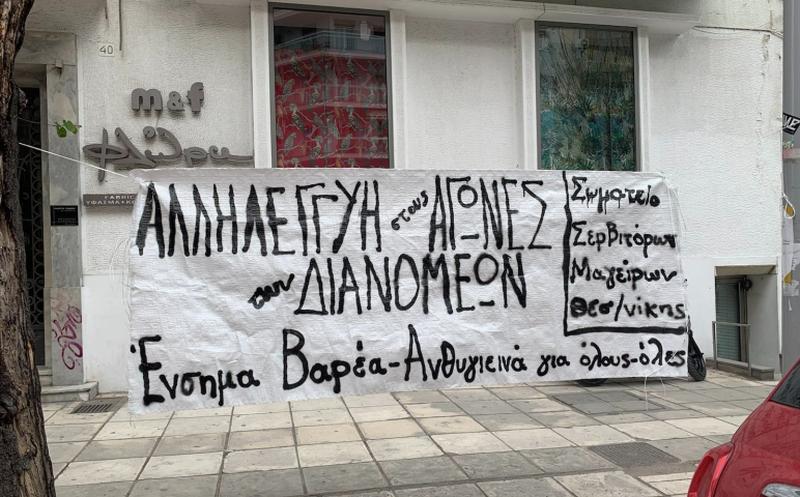 40
m&f
φλώρα
ΑΛΛΗΛΕΓΓΥΗ στους ΑΓΩΝΕΣ
των ΔΙΑΝΟΜΕΩΝ
Ένσημα Βαρέα-Ανθυγιεινά για όλους-όλες
Σωματείο
Σερβιτόρων
Μαγείρων
Θεσ/νίκης